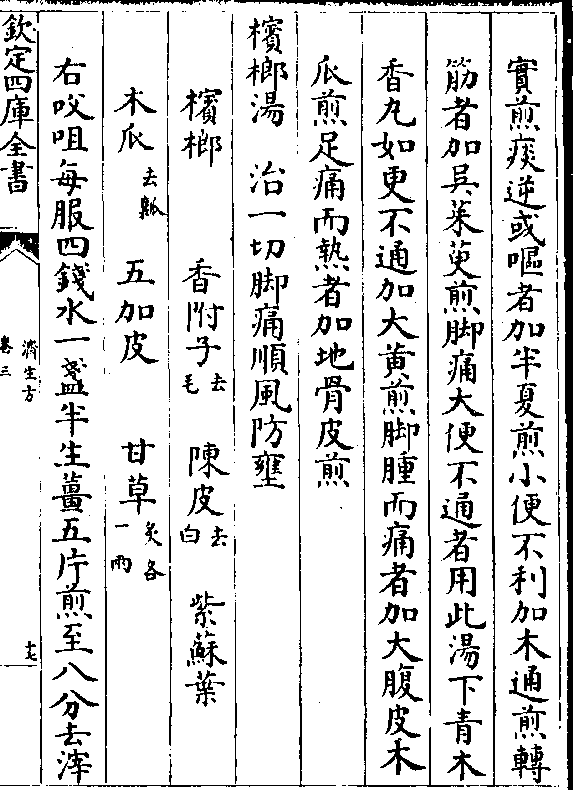 實煎痰逆或嘔者加半夏煎小便不利加木通煎轉
筋者加吳茱萸煎脚痛大便不通者用此湯下青木
香丸如更不通加大黄煎脚腫而痛者加大腹皮木
瓜煎足痛而熱者加地骨皮煎
檳榔湯 治一切脚痛順風防壅
檳榔 香附子去毛 陳皮去白 紫蘇葉
木瓜去瓤 五加皮 甘草炙各一兩
右㕮咀每服四錢水一盞半生薑五片煎至八分去滓
欽定四庫全書
濟生方
卷三
十七